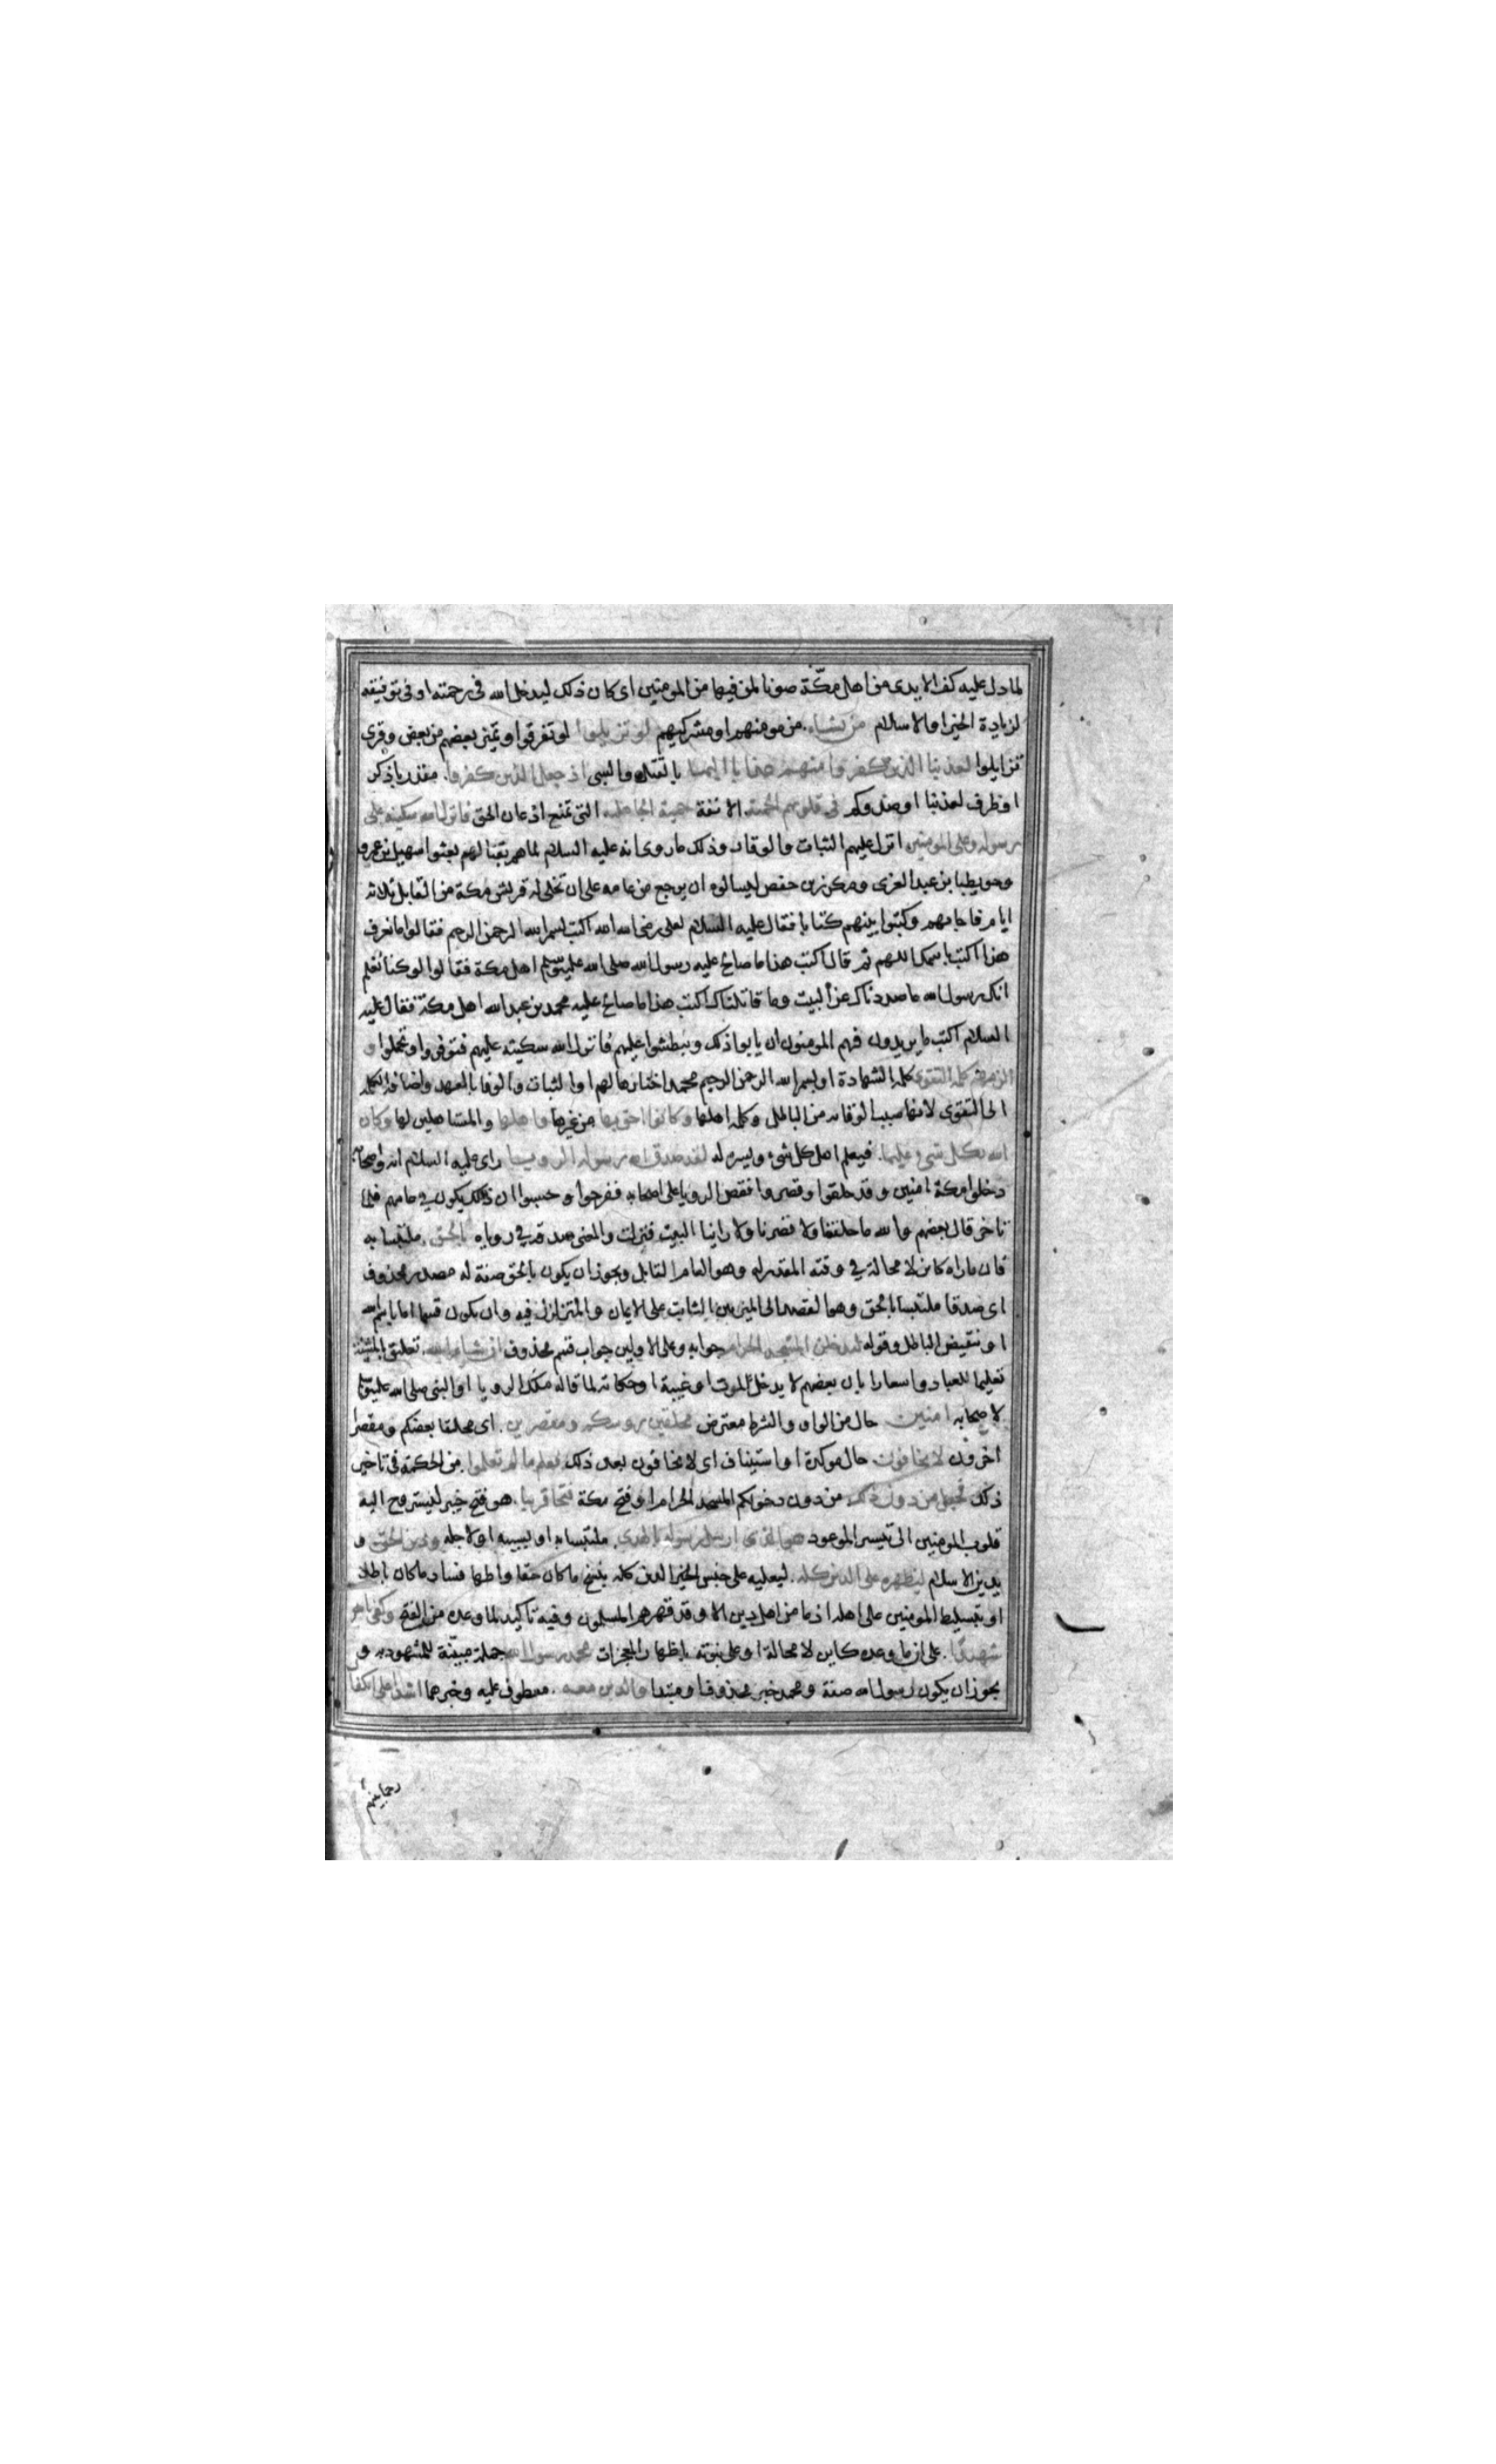 لما دل عليه كف الايدى من اهل مكّة صونا لمن فيها من المومنين اى كان ذلك ليدخل الله فى رحمته اى فى توفيقه
لزيادة الخير او الاسلام من يشاء. من مومنيهم او مشركيهم لو تزيلوا لو تفرقوا و تميز بعضهم من بعض و قرى
تزايلوا لعذبنا الذين كفروا منهم عذابا اليما بالقتل والسبى اذ جعل الذين كفروا. مقدر باذكر
او ظرف لعذبنا او صدوكم فى قلوبهم الحمية. الانفة حمية الجاهلية التى تمنع اذعان الحق فانزل الله سكينته على
رسوله وعلى المومنين انزل عليهم الثبات والوقار وذلك ما روى انه عليه السلام لما هم بقتالهم بعثوا سهيل بن عمرو
وحويطبا بن عبد العزى ومكرز بن حفص ليسالوه ان يرجع من عامه على ان تخلى له قريش مكة من القابل ثلاثه
ايام فاجابهم وكتبوا بينهم كتابا فقال عليه السلام لعلى رضى الله عنه اكتب بسم الله الرحمن الرحيم فقالوا ما نعرف
هذا اكتب باسمك اللهم ثم قال اكتب هذا ما صالح عليه رسول الله صلى الله عليه وسلم اهل مكة فقالوا لو كنا نعلم
انك رسول الله ما صددناك عن البيت وما قاتلناك اكتب هذا ما صالح عليه محمد بن عبد الله اهل مكة فقال عليه
السلام اكتب ما يريدون فهم المومنون ان يابوا ذلك ويبطشوا عليهم فانزل الله سكينته عليهم فتوقروا وتحملوا و
الزمهم كلمة التقوى كلمة الشهادة او بسم الله الرحمن الرحيم محمد اختارها لهم او الثبات والوفا بالعهد واضافة الكلمة
الى التقوى لانها سببها او كلمة اهلها وكانوا احق بها من غيرها واهلها والمستاهلين لها وكان
الله بكل شيء عليما. فيعلم اهل كل شيء وييسره له لقد صدق الله رسوله الرويا راى عليه السلام انه واصحابه
دخلوا مكة امنين وقد حلقوا وقصروا فقص الرويا على اصحابه ففرحوا وحسبوا ان ذلك يكون فى عامهم فلما
تاخر قال بعضهم والله ما حلقنا ولا قصرنا ولا راينا البيت فنزلت والمعنى صدقه فى روياه بالحق. ملتبسا به
فان ما راه كاين لا محالة فى وقته المقدر له وهو العام القابل ويجوز ان يكون بالحق صفة له مصدر محذوف
اى صدقا ملتبسا بالحق وهو القصد الى التميز بين الثابت على الايمان والمتزلزل فيه وان يكون قسما اما باسم الله
او نقيض الباطل وقوله لتدخلن المسجد الحرام جوابه وعلى الاولين جواب قسم محذوف ان شاء الله. تعليق بالمشيئة
تعليما للعباد واشعارا بان بعضهم لا يدخل لموت او غيبة او حكاية لما قاله ملك الرويا او النبى صلى الله عليه وسلم
لاصحابه امنين حال من الواو والشرط معترض محلقين روسكم ومقصرين. اى محلقا بعضكم ومقصرا
اخرون لا تخافون حال موكدة او استيناف اى لا تخافون بعد ذلك فعلم ما لم تعلموا. من الحكمة فى تاخير
ذلك فجعل من دون ذلك من دون دخولكم المسجد الحرام او فتح مكة فتحا قريبا. هو فتح خيبر ليستروح اليه
قلوب المومنين الى تيسر الموعود هو الذى ارسل رسوله بالهدى. ملتبسا به او بسببه او لاجله ودين الحق و
بدين الاسلام ليظهره على الدين كله. ليعليه على جنس الدين كله بنسخ ما كان حقا واظهار فساد ما كان باطلا
او بتسليط المومنين على اهله اذ ما من اهل دين الا وقد قهرهم المسلمون وفيه تاكيد لما وعده من الفتح وكفى بالله
شهيدا. على ان ما وعده كاين لا محالة او على نبوته باظهار المعجزات محمد رسول الله جملة مبينة للمشهود به و
يجوز ان يكون رسول الله صفة ومحمد خبر محذوف او مبتدا والذين معه. معطوف عليه وخبرهما اشداء على الكفار
رحما بينهم